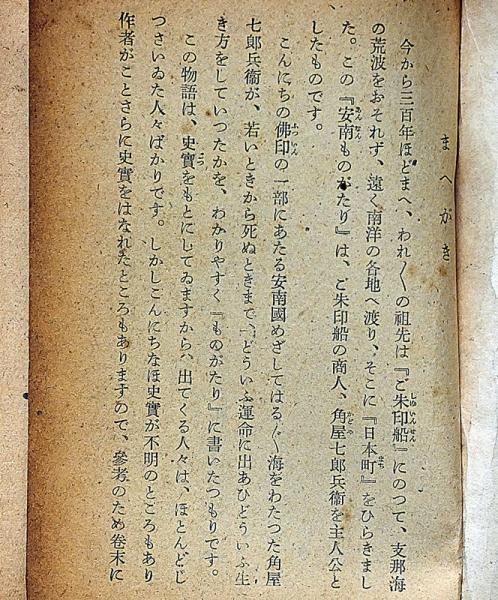 まへがき
今から三百年ほどまへ、われ〳〵の祖先は『ご朱印船』にのつて、支那海
の荒波をおそれず、遠く南洋の各地へ渡り、そこに『日本町』をひらきまし
た。この『安南ものがたり』は、ご朱印船の商人、角屋七郎兵衞を主人公と
したものです。
こんにちの佛印の一部にあたる安南國めざしてはる〴〵海をわたつた角屋
七郎兵衞が、若いときから死ぬときまで、どういふ運命に出あひどういふ生
き方をしていつたかを、わかりやすく『ものがたり』に書いたつもりです。
この物語は、史實をもとにしてゐますから、出てくる人々は、ほとんどじ
つさいゐた人々ばかりです。しかしこんにちなほ史實が不明のところもあり
作者がことさらに史實をはなれたところもありますので、參考のため卷末に